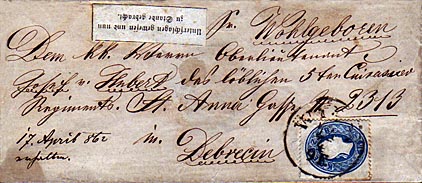 Unterschlagen gewesen und nun
zu Stande gebracht.
Sr. Wohlgeboren
Dem kk. Herrn Oberlieutenant
v. Hubert des löblichen 5ten Cuirassier
Regiments. St. Anna Gasse No 2313
17. April 862
erhalten.
in
Debrecin